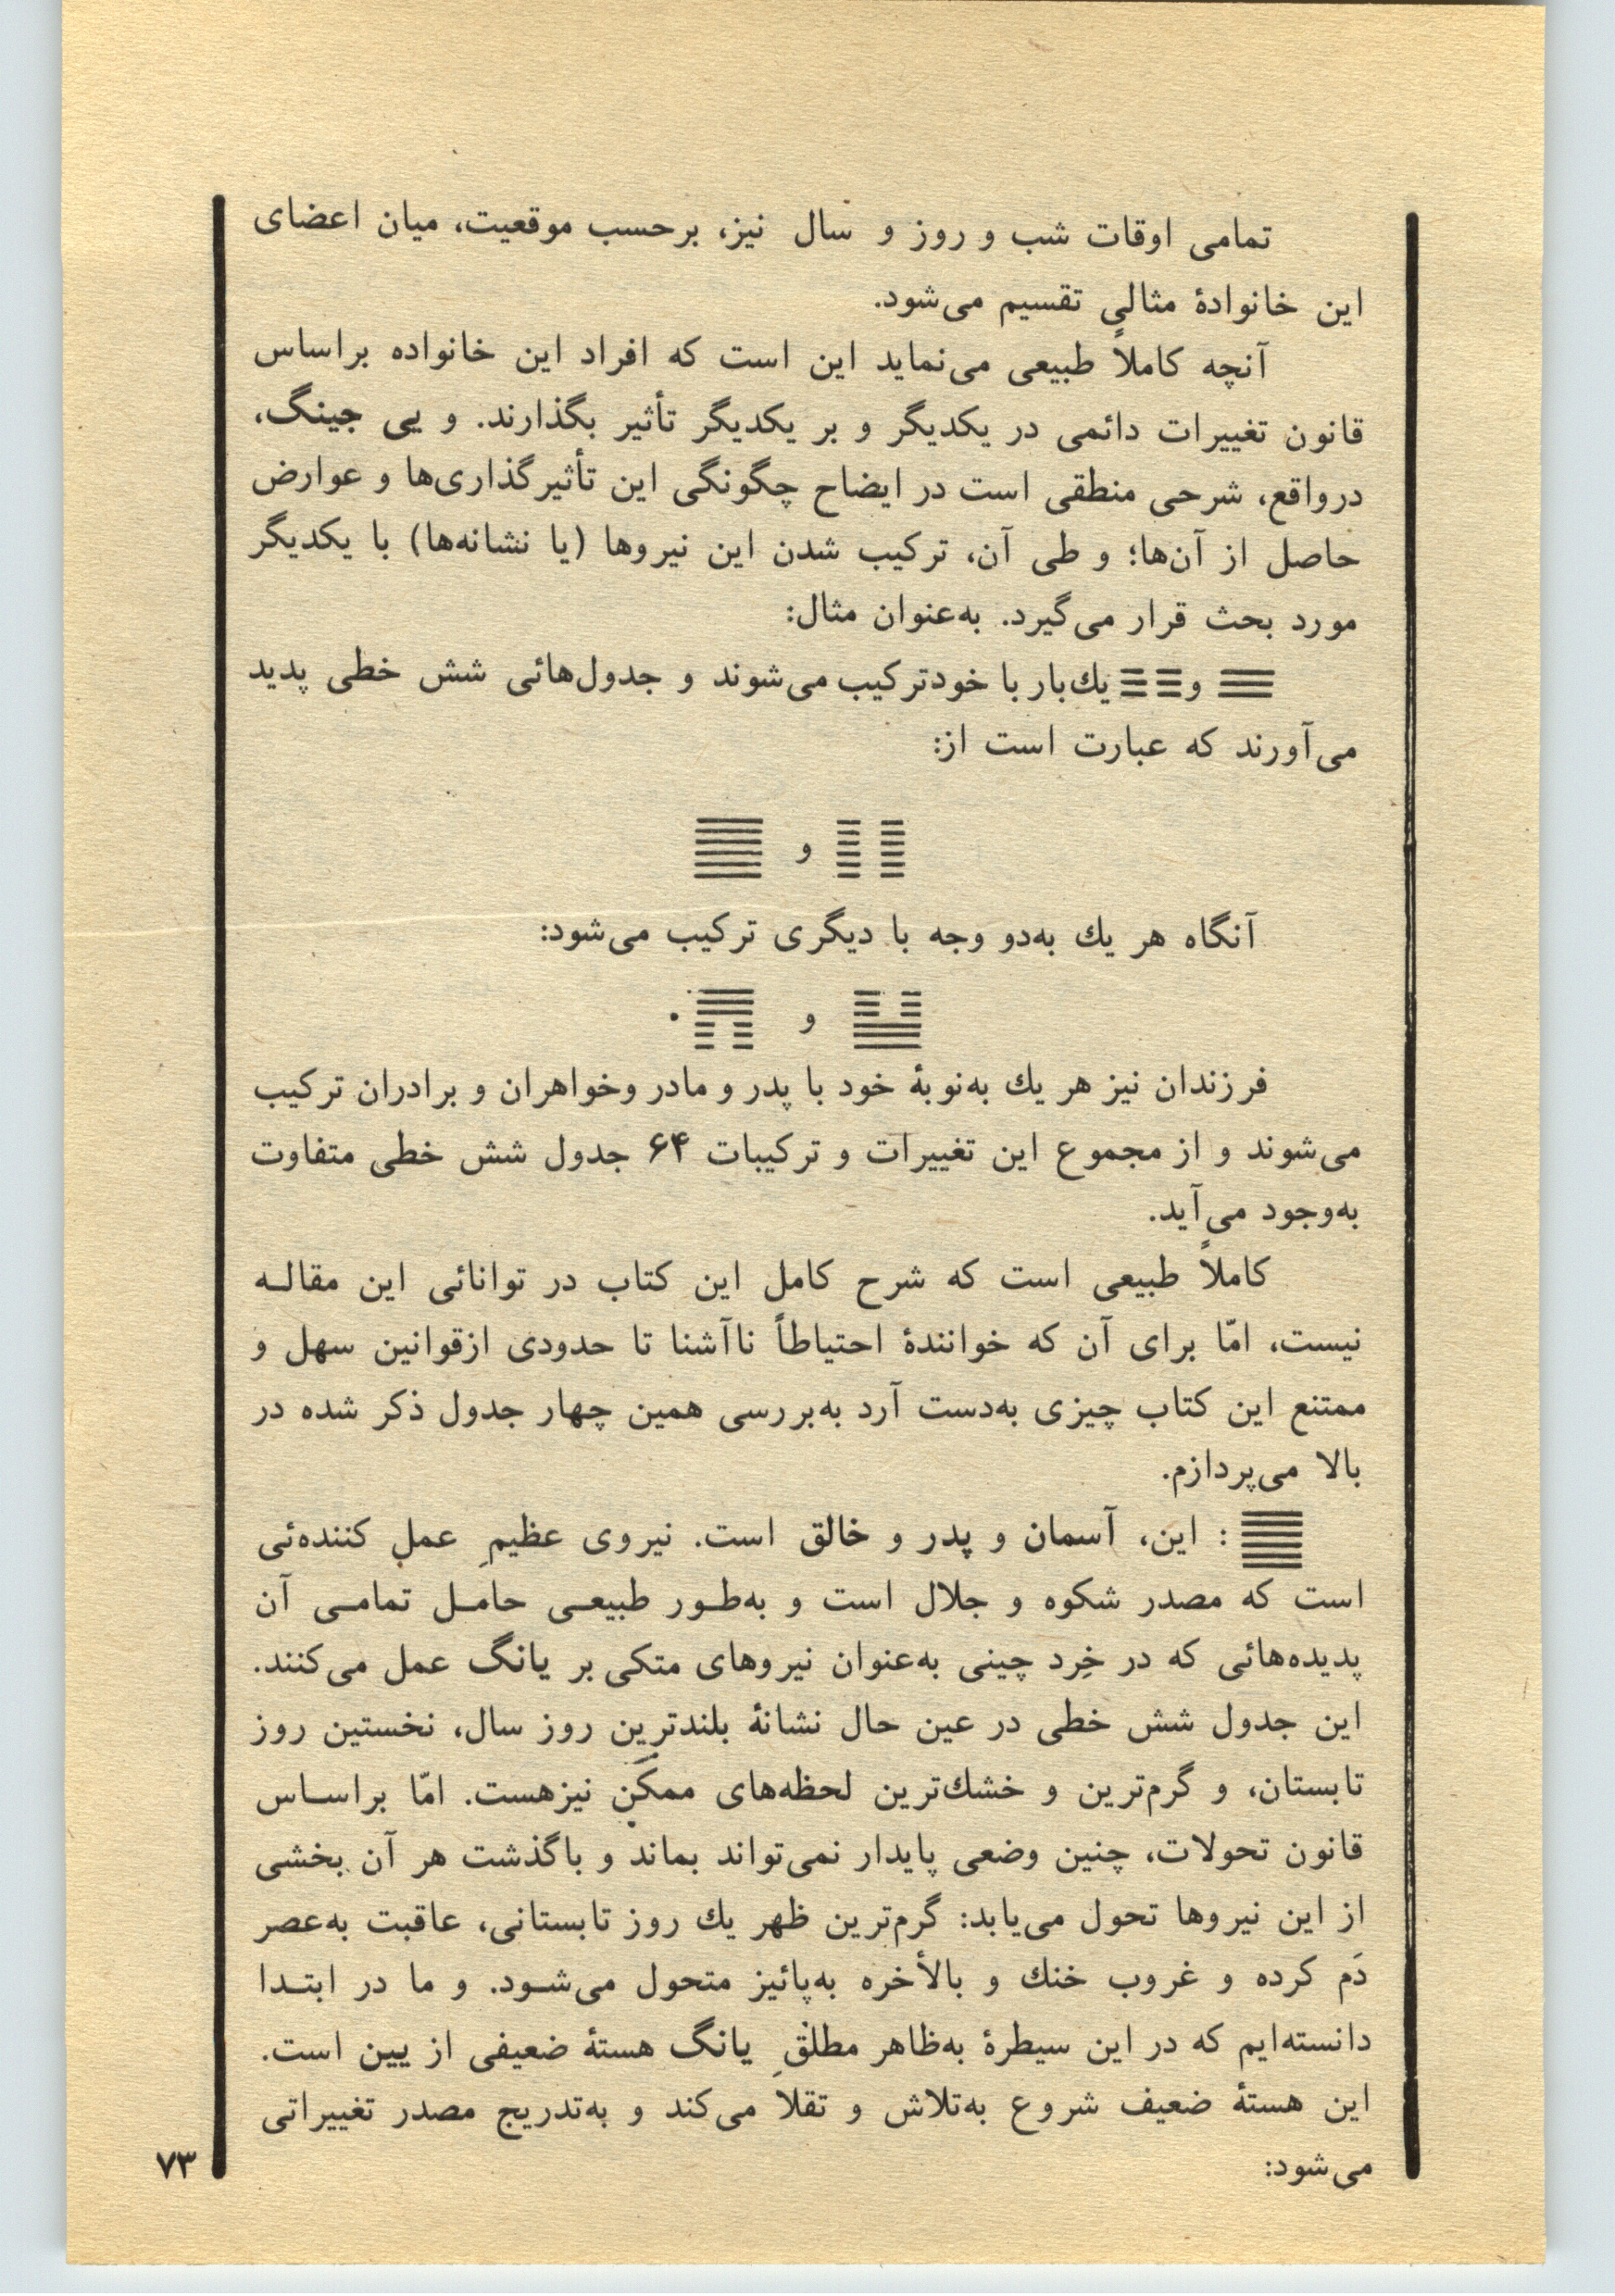 تمامی اوقات شب و روز و سال نیز، برحسب موقعیت، میان اعضای
این خانوادهٔ مثالی تقسیم می‌شود.
آنچه کاملاً طبیعی می‌نماید این است که افراد این خانواده براساس
قانون تغییرات دائمی در یکدیگر و بر یکدیگر تأثیر بگذارند. و یی جینگ،
درواقع، شرحی منطقی است در ایضاح چگونگی این تأثیرگذاری‌ها و عوارض
حاصل از آن‌ها؛ و طی آن، ترکیب شدن این نیروها (یا نشانه‌ها) با یکدیگر
مورد بحث قرار می‌گیرد. به‌عنوان مثال:
☰ و ☷ یك‌بار با خودترکیب می‌شوند و جدول‌هائی شش خطی پدید
می‌آورند که عبارت است از:
䷁ و ䷀
آنگاه هر یك به‌دو وجه با دیگری ترکیب می‌شود:
䷊ و ䷋.
فرزندان نیز هر یك به‌نوبهٔ خود با پدر و مادر وخواهران و برادران ترکیب
می‌شوند و از مجموع این تغییرات و ترکیبات ۶۴ جدول شش خطی متفاوت
به‌وجود می‌آید.
کاملاً طبیعی است که شرح کامل این کتاب در توانائی این مقالـه
نیست، امّا برای آن که خوانندهٔ احتیاطاً ناآشنا تا حدودی ازقوانین سهل و
ممتنع این کتاب چیزی به‌دست آرد به‌بررسی همین چهار جدول ذکر شده در
بالا می‌پردازم.
䷀ : این، آسمان و پدر و خالق است. نیروی عظیمِ عمل کننده‌ئی
است که مصدر شکوه و جلال است و به‌طـور طبیعـی حامـل تمامـی آن
پدیده‌هائی که در خِرد چینی به‌عنوان نیروهای متکی بر یانگ عمل می‌کنند.
این جدول شش خطی در عین حال نشانهٔ بلندترین روز سال، نخستین روز
تابستان، و گرم‌ترین و خشك‌ترین لحظه‌های ممکن نیزهست. امّا براسـاس
قانون تحولات، چنین وضعی پایدار نمی‌تواند بماند و باگذشت هر آن بخشی
از این نیروها تحول می‌یابد: گرم‌ترین ظهر یك روز تابستانی، عاقبت به‌عصر
دَم کرده و غروب خنك و بالأخره به‌پائیز متحول می‌شـود. و ما در ابتـدا
دانسته‌ایم که در این سیطرهٔ به‌ظاهر مطلقِ یانگ هستهٔ ضعیفی از یین است.
این هستهٔ ضعیف شروع به‌تلاش و تقلا می‌کند و به‌تدریج مصدر تغییراتی
می‌شود:
۷۳